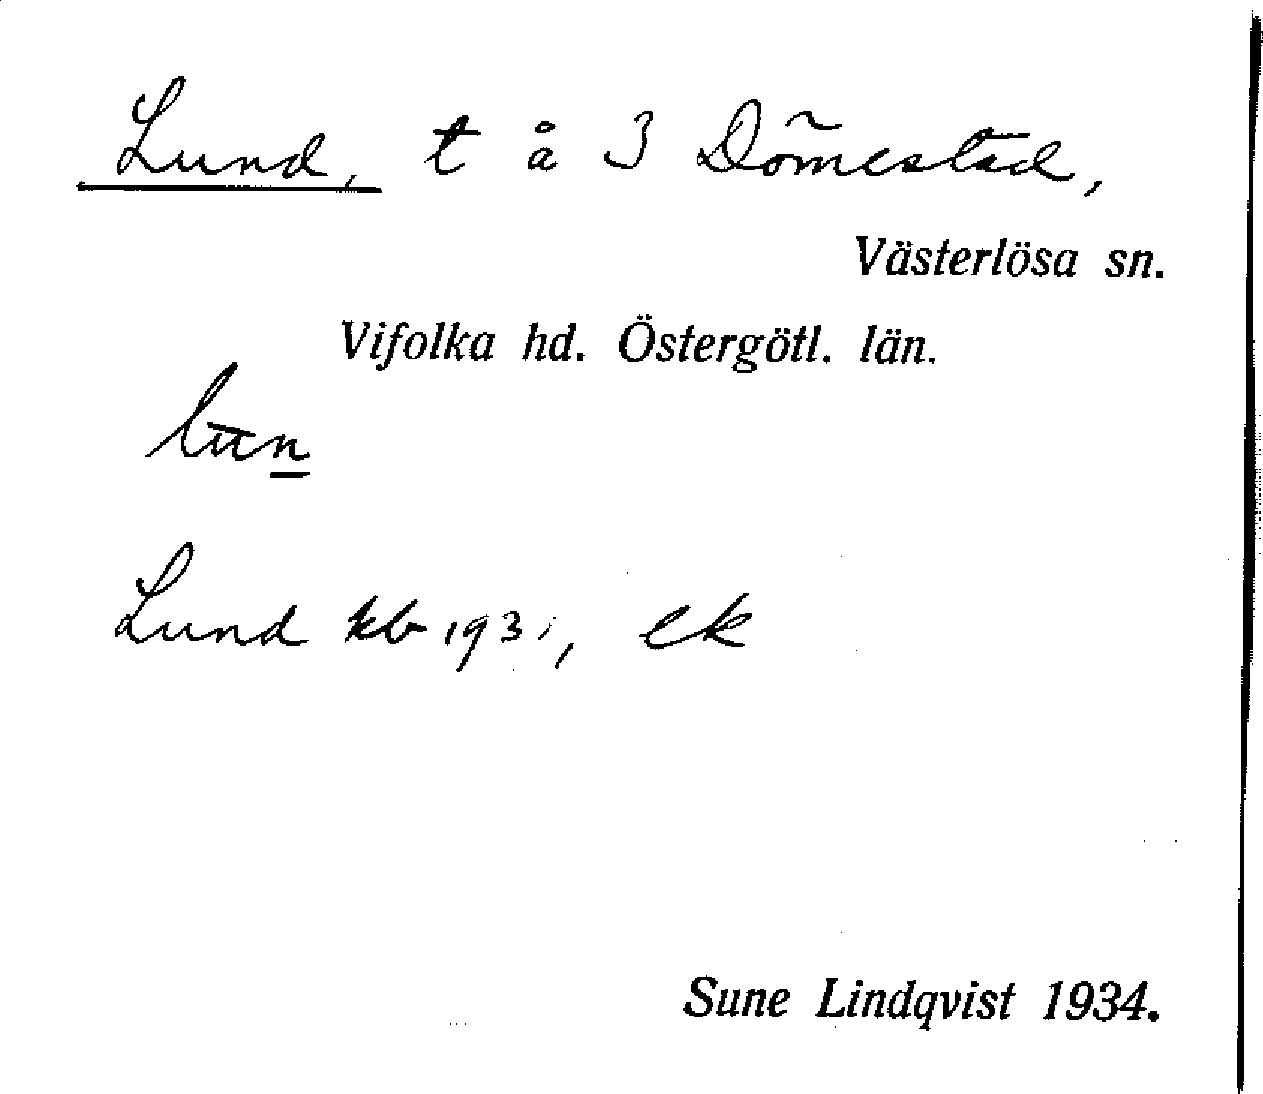 Lund, t å 3 Dömestad,
Västerlösa sn.
Vifolka hd. Östergötl. län.
lun
Lund kb 1931, ek
Sune Lindqvist 1934.